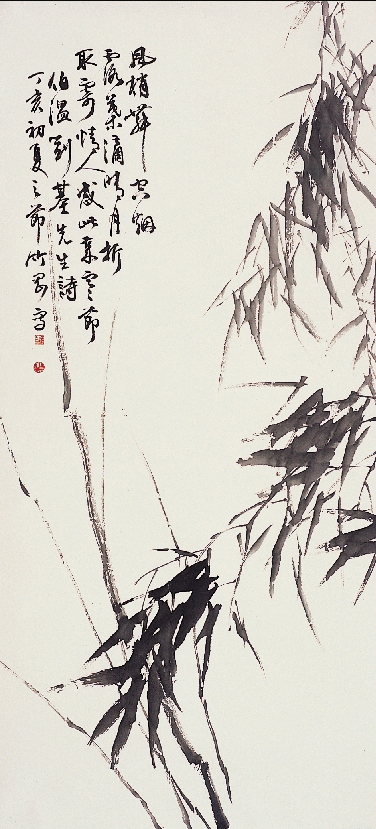 風梢舞空烟
露葉滴晴月折
取寄情人感此歲寒節
伯溫劉基先生詩
丁亥初夏之節竹寫